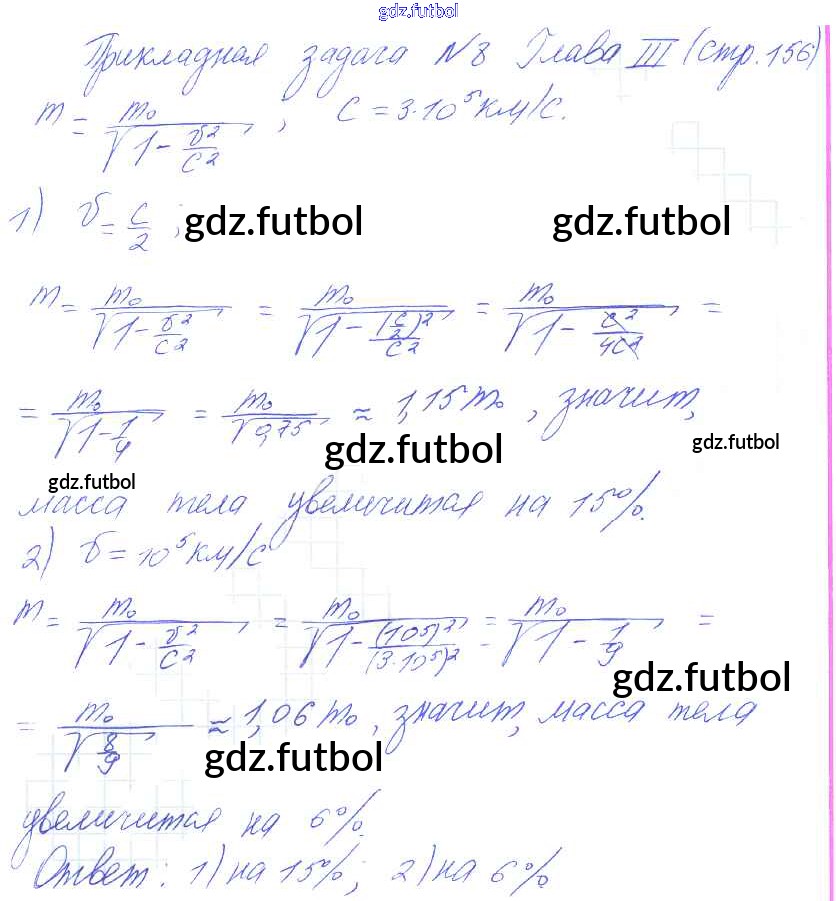 gdz.futbol
Прикладная задача №8 Глава III (стр. 156)
m = m₀/√(1 - v²/c²) ; c = 3·10⁵ км/с.
1) v = c/2 ; gdz.futbol gdz.futbol
m = m₀/√(1 - v²/c²) = m₀/√(1 - (c/2)²/c²) = m₀/√(1 - c²/4c²) =
= m₀/√(1 - 1/4) = m₀/√0,75 ≈ 1,15 m₀, значит,
gdz.futbol gdz.futbol
gdz.futbol
масса тела увеличится на 15%.
2) v = 10⁵ км/с
m = m₀/√(1 - v²/c²) = m₀/√(1 - (10⁵)²/(3·10⁵)²) = m₀/√(1 - 1/9) =
gdz.futbol
= m₀/√(8/9) ≈ 1,06 m₀, значит, масса тела
gdz.futbol
увеличится на 6%.
Ответ: 1) на 15%; 2) на 6%